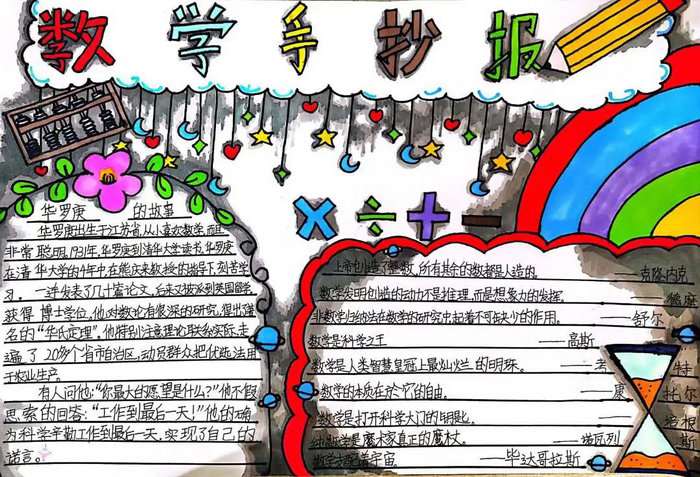 数学手抄报
华罗庚 的故事
华罗庚出生于江苏省,从小喜欢数学,而且
非常聪明,1931年,华罗庚到清华大学读书,华罗庚
在清华大学的4年中,在熊庆来教授的指导下,刻苦学
习,一连发表了几十篇论文,后来又被派到英国留学,
获得博士学位。他对数论有很深的研究,得出著
名的“华氏定理”。他特别注意理论联系实际,走
遍了20多个省市自治区,动员群众把优选法用
于农业生产。
有人问他:“你最大的愿望是什么?”他不假
思索的回答:“工作到最后一天!”他的确
为科学辛勤工作到最后一天,实现了自己的
诺言。
× ÷ + −
上帝创造了整数,所有其余的数都是人造的。——克隆内克
数学发明创造的动力不是推理,而是想象力的发挥。——德摩
非数学归纳法在数学的研究中,起着不可缺少的作用。——舒尔
数学是科学之王——高斯
数学是人类智慧皇冠上最灿烂的明珠。——考特
数学的本质在于它的自由。——康托尔
数学是打开科学大门的钥匙。——培根
数学是魔术家真正的魔杖。——塔瓦列斯
数学支配着宇宙。——毕达哥拉斯